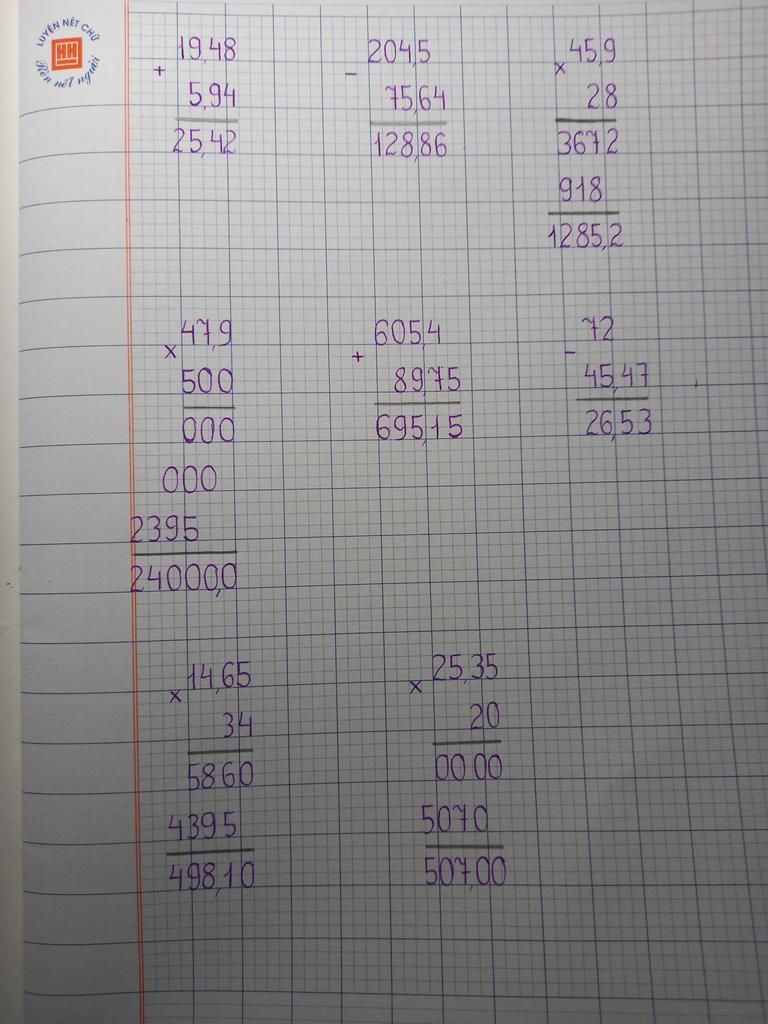 LUYỆN NÉT CHỮ
HH
Rèn nết người
19,48
+
5,94
25,42
204,5
-
75,64
128,86
45,9
x
28
3672
918
1285,2
47,9
x
500
000
000
2395
24000,0
605,4
+
89,75
695,15
72
-
45,47
26,53
14,65
x
34
5860
4395
498,10
25,35
x
20
0000
5070
507,00